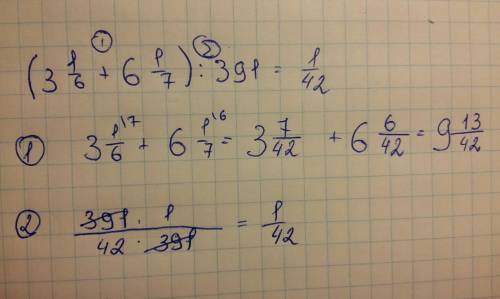 ① ②
(3 1/6 + 6 1/7) : 391 = 1/42
① 3 1\7/6 + 6 1\6/7 = 3 7/42 + 6 6/42 = 9 13/42
② 391 · 1 / 42 · 391 = 1/42